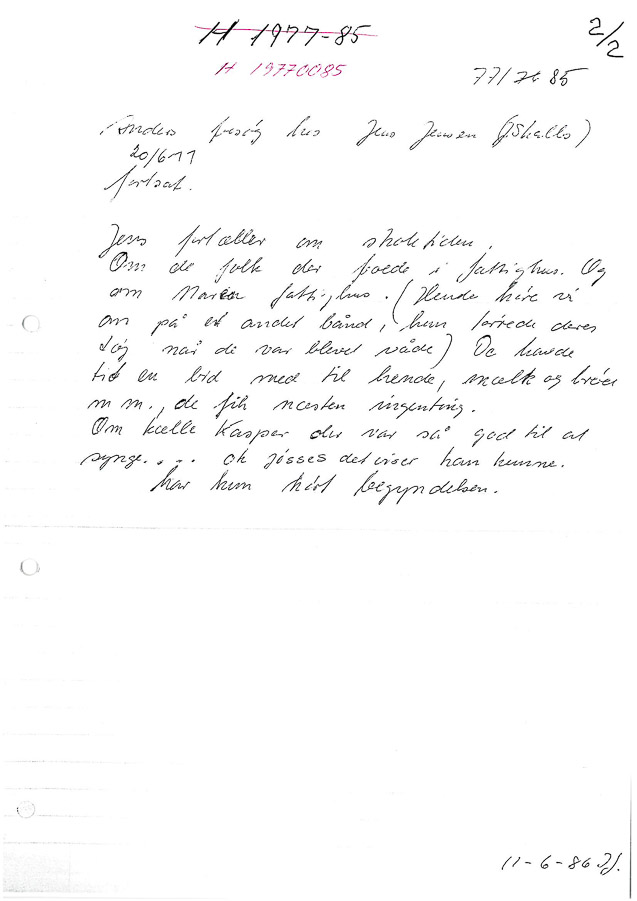 H 1977-85
2/2
H 19770085
77/ 85
Anders besøg hos Jens Jensen (J. Skallo)
20/6-77
fortsat.
Jens fortæller om skoletiden.
Om de folk der boede i fattighus. Og
om Maren fattighus. (Hende hører vi
om på et andet bånd, hun tørrede deres
tøj når de var blevet våde) De havde
tit en bid med til hende, mælk og brød
m m., de fik næsten ingenting.
Om Kælle Kasper der var så god til at
synge.... ok jösses det viser han kunne.
har kun hørt begyndelsen.
11-6-86